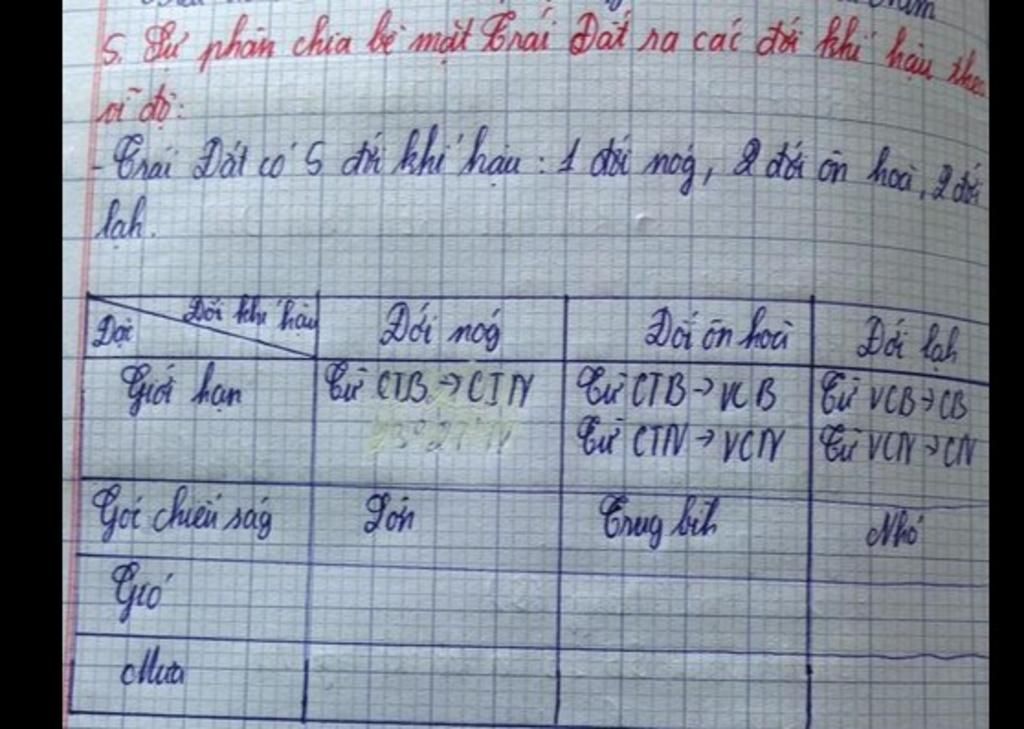 5. Sự phân chia bề mặt Trái Đất ra các đới khí hậu theo
vĩ độ:
- Trái Đất có 5 đới khí hậu : 1 đới nóg, 2 đới ôn hoà, 2 đới
lạh.
Đới khí hậu
Đới nóg
Đới ôn hoà
Đới lạh
Giới hạn
Từ CTB → CTN
Từ CTB → VCB
Từ VCB → CB
Từ CTN → VCN
Từ VCN → CN
Góc chiếu ság
Lớn
Trug bìh
Nhỏ
Gió
Mưa